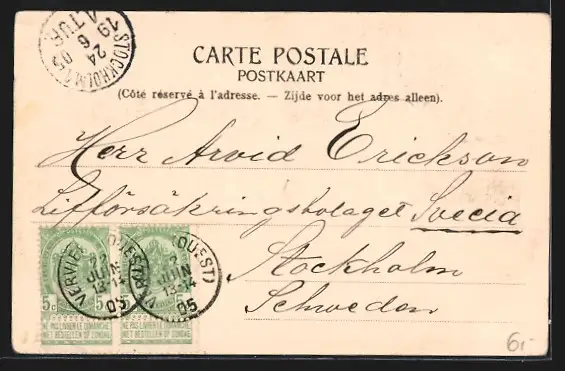 STOCKHOLM 1
24
6
05
19
TUR
CARTE POSTALE
POSTKAART
(Côté réservé à l'adresse. — Zijde voor het adres alleen).
Herr Arvid Erickson
Lifförsäkringsbolaget Svecia
Stockholm
Schweden
VERVIERS (OUEST)
JUIN
13-14
05
VERVIERS (OUEST)
JUIN
13-14
1905
5c 5
5
NE PAS LIVRER LE DIMANCHE
NIET BESTELLEN OP ZONDAG
NE PAS LIVRER LE DIMANCHE
NIET BESTELLEN OP ZONDAG
6,-